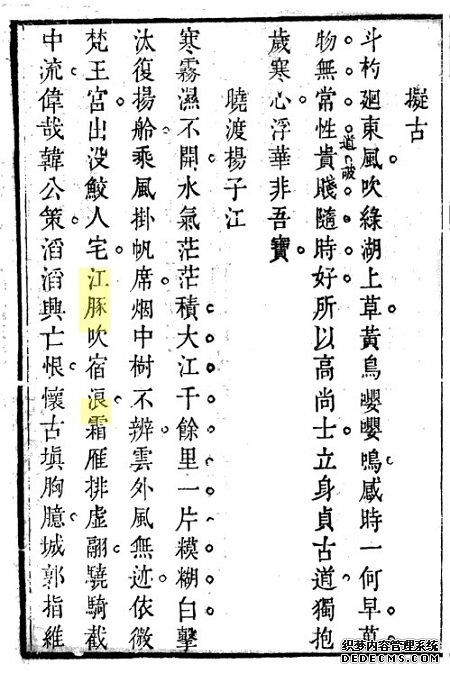 擬古
斗杓廻東風吹綠湖上草黃鳥嚶嚶鳴感時一何早萬
道破
物無常性貴賤隨時好所以高尚士立身貞古道獨抱
歲寒心浮華非吾寶
曉渡揚子江
寒霧濕不開水氣茫茫積大江千餘里一片糢糊白擊
汰復揚舲乘風掛帆席烟中樹不辨雲外風無迹依微
梵王宮出没鮫人宅江豚吹宿浪霜雁排虛翮驍騎截
中流偉哉韓公策滔滔興亡恨懷古塡胸臆城郭指維
织梦内容管理系统
DEDECMS.COM